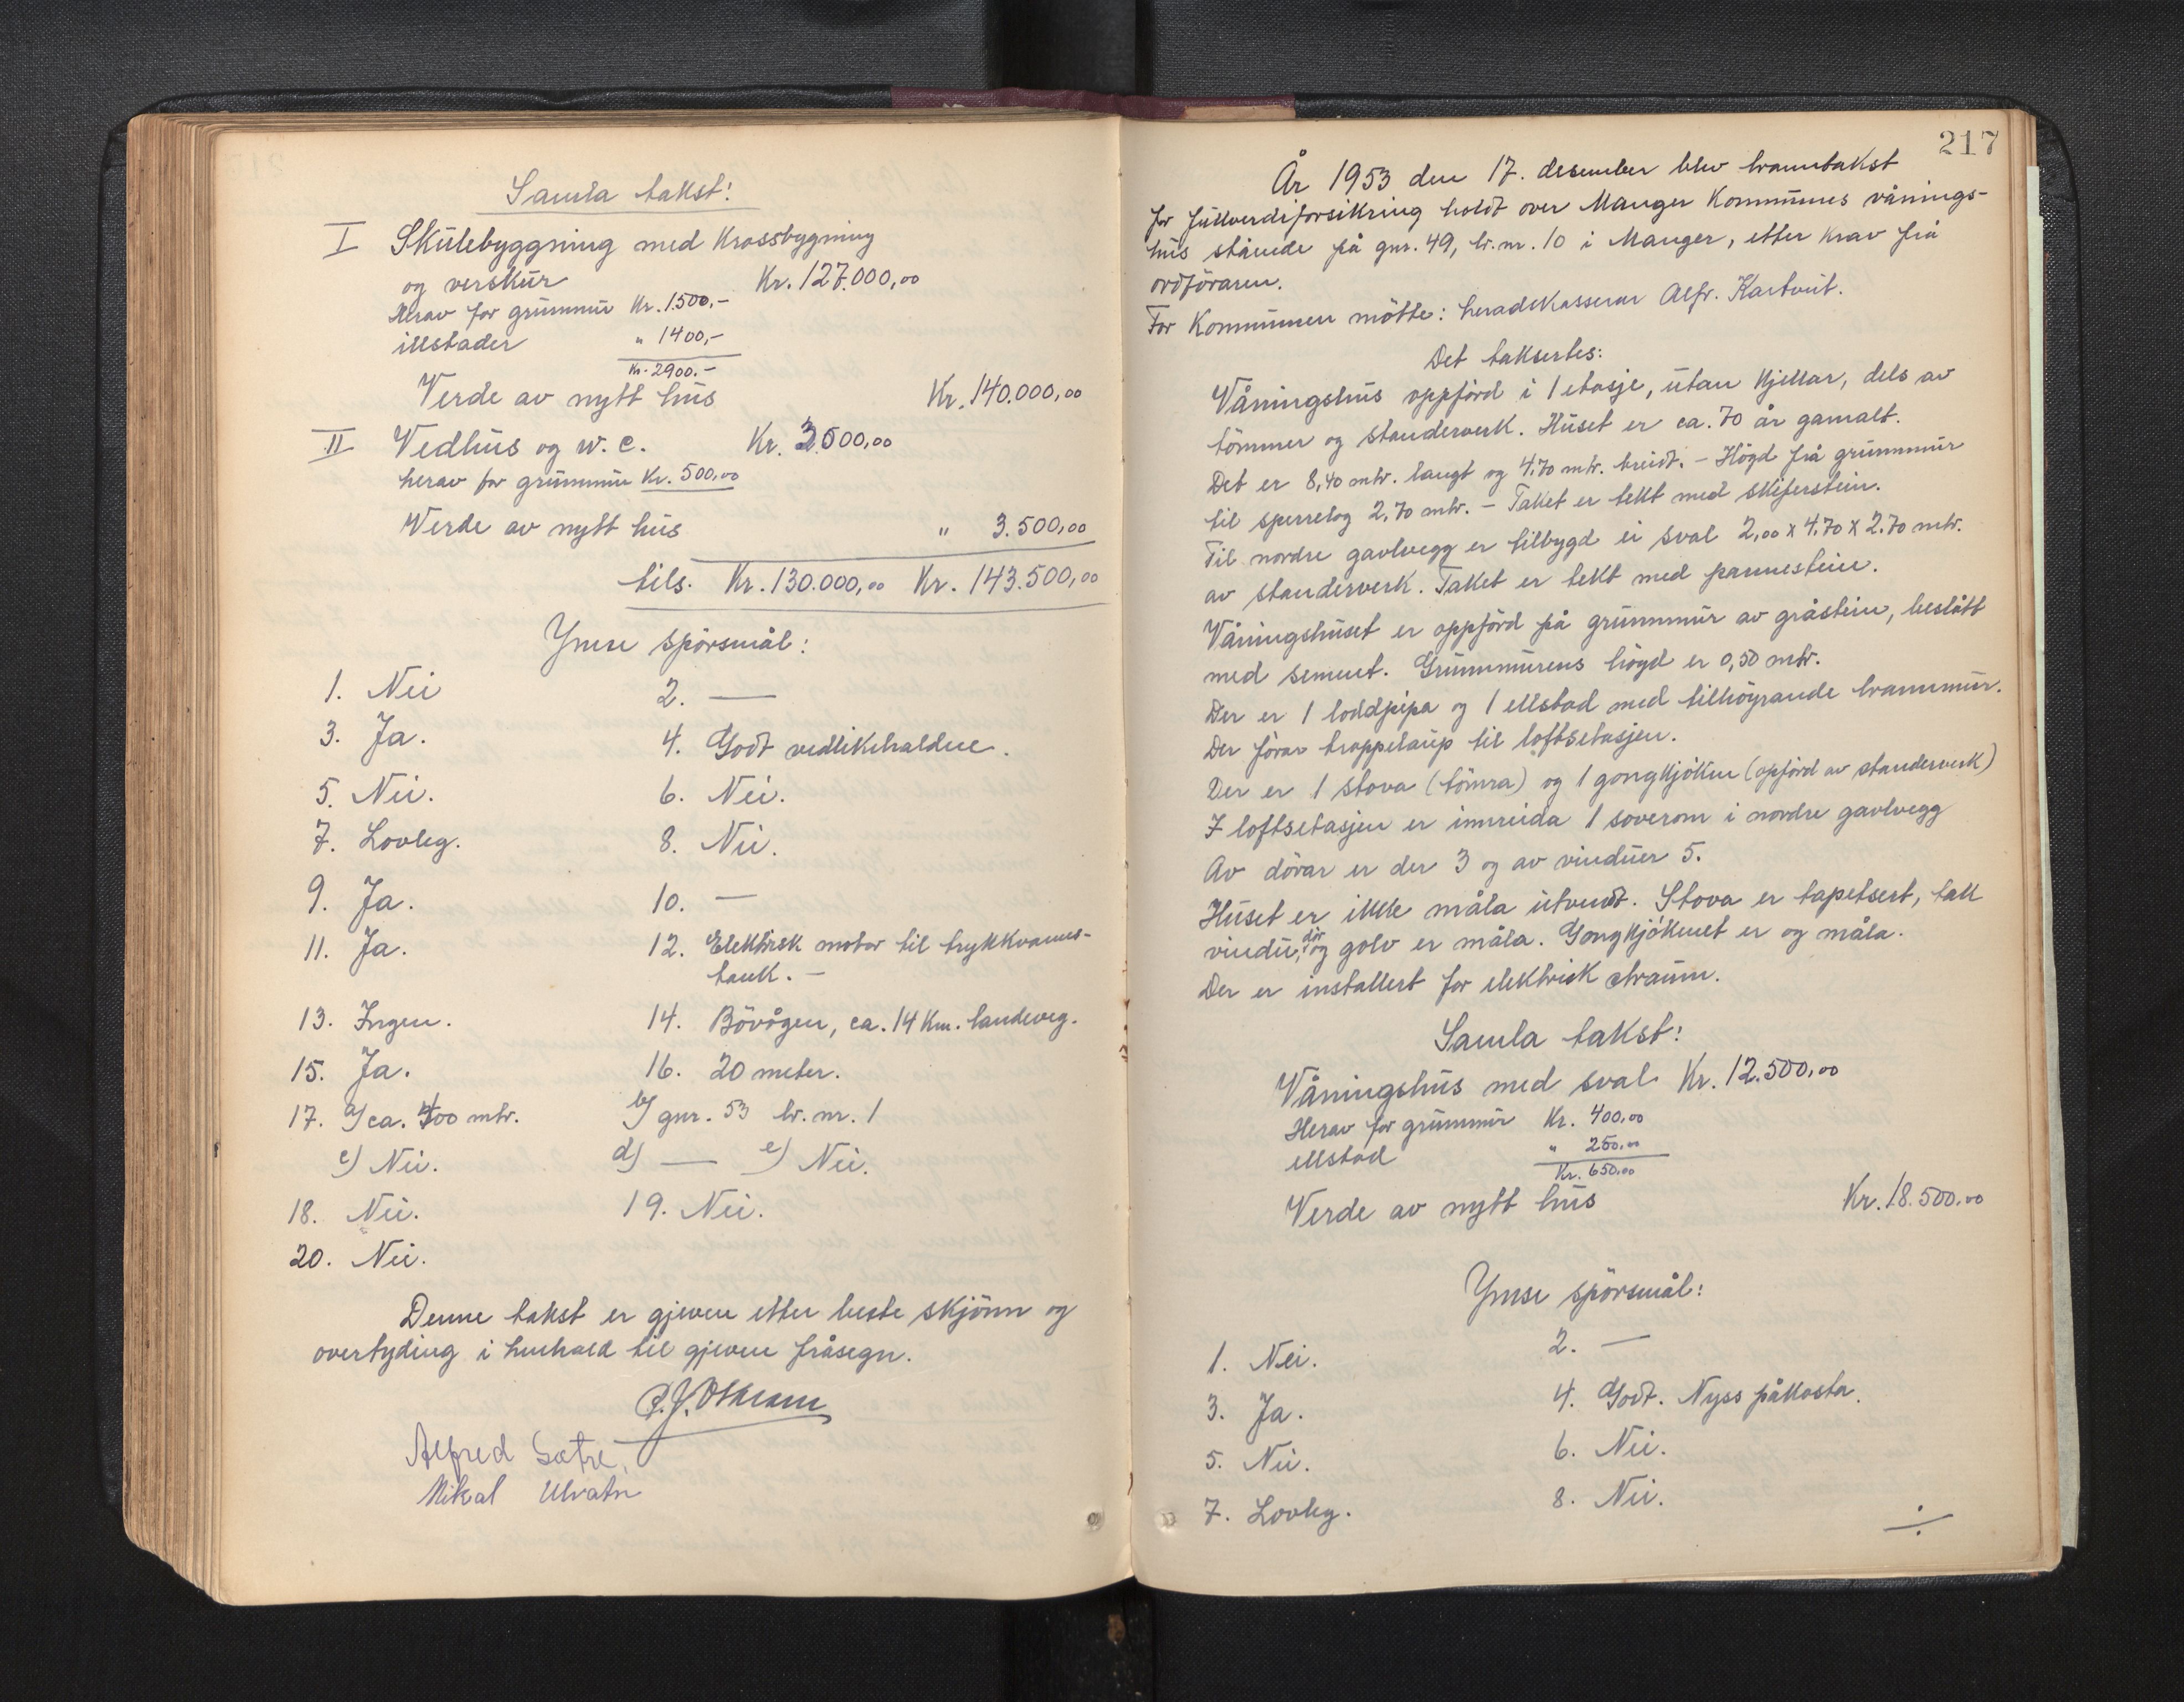 Samla takst:
I Skúlebyggning med Krossbygning
og verskur Kr. 127.000,00
Herav for grúnnmúr Kr. 1500,-
illstader " 1400,-
Kr. 2900.-
Verde av nytt hús Kr. 140.000,00
II Vedhús og w.c. Kr. 3.000,00
herav for grúnnmúr Kr. 500,00
Verde av nytt hús " 3.500,00
tils. Kr. 130.000,00 Kr. 143.500,00
Ymse spörsmål:
1. Nei 2. —
3. Ja. 4. Godt vedlikehaldne.
5. Nei. 6. Nei.
7. Lovleg. 8. Nei.
9. Ja. 10. —
11. Ja. 12. Elektrisk motor til trykkvanns-
tank. -
13. Ingen. 14. Bövågen, ca. 14 Km. landeveg.
15. Ja. 16. 20 meter.
17. a) ca. 400 mtr. b) gnr. 53 br. nr. 1
c) Nei. d) — e) Nei.
18. Nei. 19. Nei.
20. Nei.
Denne takst er gjeven etter beste skjönn og
overtyding i henhald til gjeven fråsegn.
Alfred Sætre.
Mikal Ulvatn
217
År 1953 den 17. desember blev branntakst
for fúllverdiforsikring holdt over Manger Kommúnes vånings-
hús stående på gnr. 49, br. nr. 10 i Manger, etter krav frå
ordföraren.
For Kommúnen mötte: heradskasserar Alfr. Kartveit.
Det taksertes:
Våningshús oppförd i 1 etasje, útan kjellar, dels av
tömmer og standerverk. Húset er ca. 70 år gamalt.
Det er 8,40 mtr. langt og 4.70 mtr. breidt. - Högd frå grúnnmúr
til sperrelag 2,70 mtr. - Taket er tekt med skiferstein.
Til nordre gavlvegg er tilbygd ei sval 2,00 x 4.70 x 2.70 mtr.
av standerverk. Taket er tekt med pannestein.
Våningshúset er oppförd på grúnnmúr av gråstein, beslått
med sement. Grúnnmúrens högd er 0,50 mtr.
Der er 1 loddpipa og 1 ellstad med tilhöyrande brannmúr.
Der förar troppelaup til loftsetasjen.
Der er 1 stova (tömra) og 1 gongkjöken (opförd av standerverk)
I loftsetasjen er innreida 1 soverom i nordre gavlvegg
Av dörar er der 3 og av vindúer 5.
Húset er ikkke måla útvendt. Stova er tapetsert, takk
vindú, dör og golv er måla. Gongkjökenet er og måla.
Der er installert for elektrisk straúm.
Samla takst:
Våningshús med sval Kr. 12.500,00
Herav for grúnnmúr Kr. 400,00
ellstad " 250.00
Kr. 650,00
Verde av nytt hús Kr. 18.500,00
Ymse spörsmål:
1. Nei. 2. —
3. Ja. 4. Godt. Nyss påkosta.
5. Nei. 6. Nei.
7. Lovleg. 8. Nei.
÷